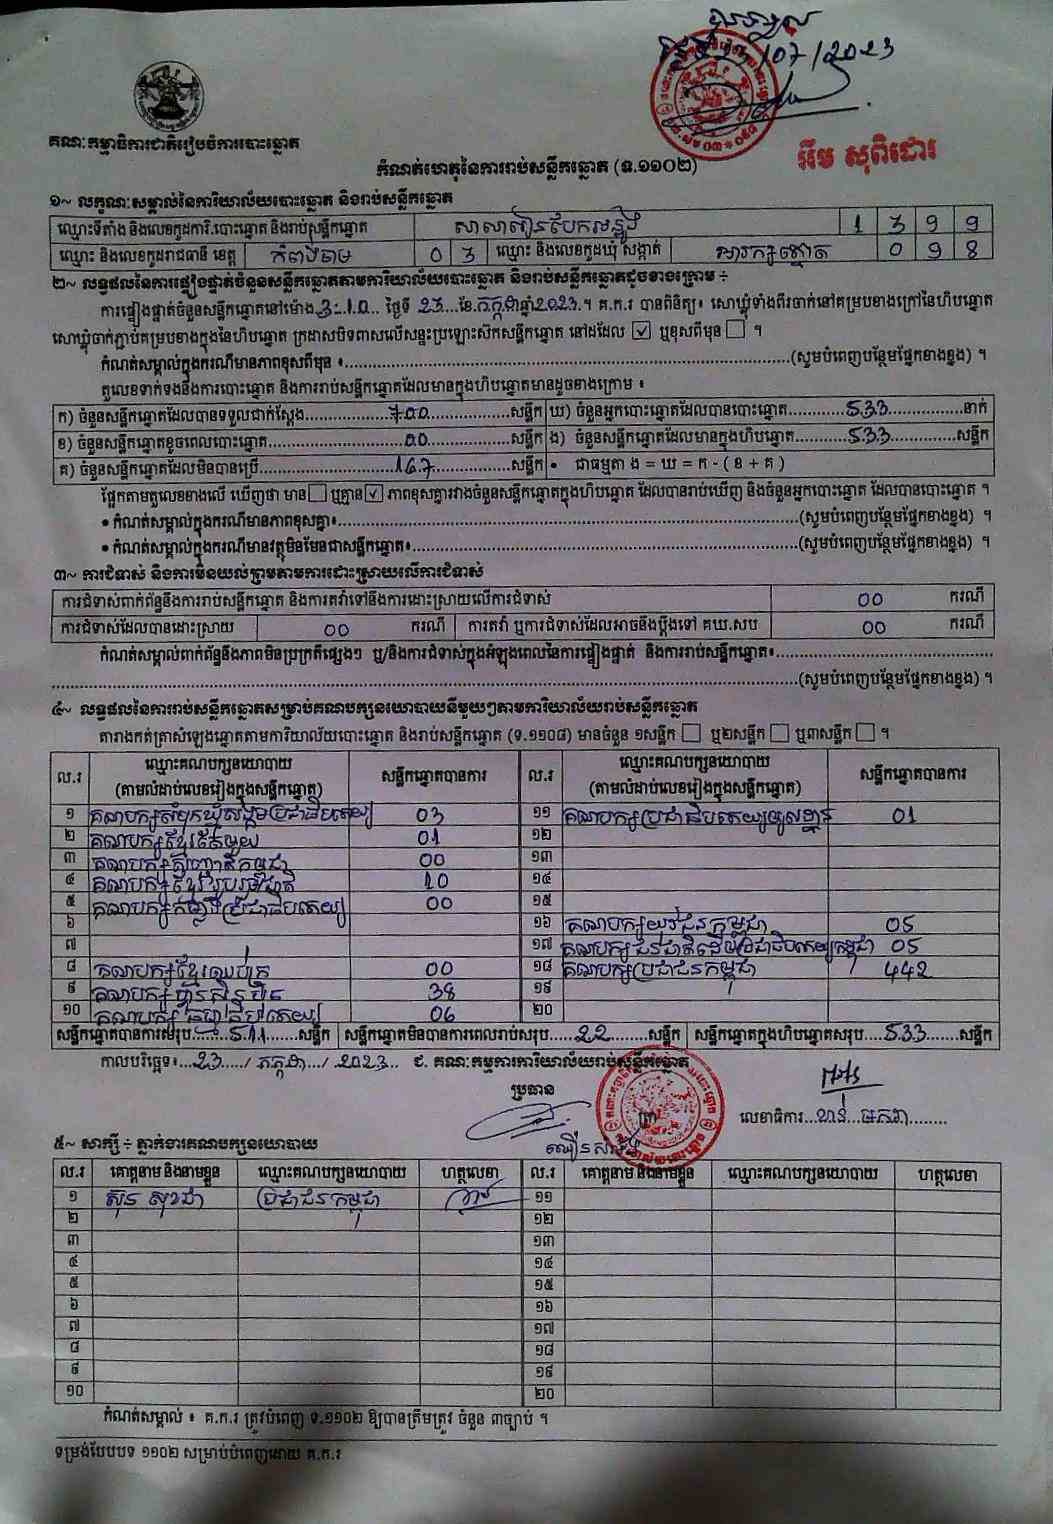 /07/2023
គណៈកម្មាធិការជាតិរៀបចំការបោះឆ្នោត
កំណត់ហេតុនៃការរាប់សន្លឹកឆ្នោត (ទ.១១០២)
អឹម សុពិដោរ
១~ លក្ខណៈសម្គាល់នៃការិយាល័យបោះឆ្នោត និងរាប់សន្លឹកឆ្នោត
ឈ្មោះទីតាំង និងលេខកូដការិ.បោះឆ្នោត និងរាប់សន្លឹកឆ្នោត សាលារៀនបែកអន្លូង 1 3 9 9
ឈ្មោះ និងលេខកូដរាជធានី ខេត្ត កំពង់ចាម 0 3 ឈ្មោះ និងលេខកូដឃុំ សង្កាត់ អារក្សត្នោត 0 9 8
២~ លទ្ធផលនៃការផ្ទៀងផ្ទាត់ចំនួនសន្លឹកឆ្នោតតាមការិយាល័យបោះឆ្នោត និងរាប់សន្លឹកឆ្នោតដូចខាងក្រោម ÷
ការផ្ទៀងផ្ទាត់ចំនួនសន្លឹកឆ្នោតនៅម៉ោង 3:10 ថ្ងៃទី 23 ខែ កក្កដា ឆ្នាំ 2023 ។ គ.ក.រ បានពិនិត្យ៖ សោឃ្លុំទាំងពីរចាក់នៅគម្របខាងក្រៅនៃហិបឆ្នោត
សោឃ្លុំចាក់ភ្ជាប់គម្របខាងក្នុងនៃហិបឆ្នោត ក្រដាសបិទពាសលើសន្ទះប្រឡោះស៊កសន្លឹកឆ្នោត នៅដដែល ☑ ឬខុសពីមុន ☐ ។
កំណត់សម្គាល់ក្នុងករណីមានភាពខុសពីមុន ៖ (សូមបំពេញបន្ថែមផ្នែកខាងខ្នង) ។
តួលេខទាក់ទងនឹងការបោះឆ្នោត និងការរាប់សន្លឹកឆ្នោតដែលមានក្នុងហិបឆ្នោតមានដូចខាងក្រោម ៖
ក) ចំនួនសន្លឹកឆ្នោតដែលបានទទួលជាក់ស្ដែង 700 សន្លឹក ឃ) ចំនួនអ្នកបោះឆ្នោតដែលបានបោះឆ្នោត 533 នាក់
ខ) ចំនួនសន្លឹកឆ្នោតខូចពេលបោះឆ្នោត 00 សន្លឹក ង) ចំនួនសន្លឹកឆ្នោតដែលមានក្នុងហិបឆ្នោត 533 សន្លឹក
គ) ចំនួនសន្លឹកឆ្នោតដែលមិនបានប្រើ 167 សន្លឹក • ជាធម្មតា ង = ឃ = ក - ( ខ + គ )
ផ្អែកតាមតួលេខខាងលើ ឃើញថា មាន ☐ ឬគ្មាន ☑ ភាពខុសគ្នារវាងចំនួនសន្លឹកឆ្នោតក្នុងហិបឆ្នោត ដែលបានរាប់ឃើញ និងចំនួនអ្នកបោះឆ្នោត ដែលបានបោះឆ្នោត ។
• កំណត់សម្គាល់ក្នុងករណីមានភាពខុសគ្នា៖ (សូមបំពេញបន្ថែមផ្នែកខាងខ្នង) ។
• កំណត់សម្គាល់ក្នុងករណីមានវត្ថុមិនមែនជាសន្លឹកឆ្នោត៖ (សូមបំពេញបន្ថែមផ្នែកខាងខ្នង) ។
៣~ ការជំទាស់ និងការមិនយល់ព្រមតាមការដោះស្រាយលើការជំទាស់
ការជំទាស់ពាក់ព័ន្ធនឹងការរាប់សន្លឹកឆ្នោត និងការតវ៉ាទៅនឹងការដោះស្រាយលើការជំទាស់ 00 ករណី
ការជំទាស់ដែលបានដោះស្រាយ 00 ករណី ការតវ៉ា ឬការជំទាស់ដែលអាចនឹងប្ដឹងទៅ គឃ.សប 00 ករណី
កំណត់សម្គាល់ពាក់ព័ន្ធនឹងភាពមិនប្រក្រតីផ្សេងៗ ឬ/និងការជំទាស់ក្នុងអំឡុងពេលនៃការផ្ទៀងផ្ទាត់ និងការរាប់សន្លឹកឆ្នោត៖
(សូមបំពេញបន្ថែមផ្នែកខាងខ្នង) ។
៤~ លទ្ធផលនៃការរាប់សន្លឹកឆ្នោតសម្រាប់គណបក្សនយោបាយនីមួយៗតាមការិយាល័យរាប់សន្លឹកឆ្នោត
តារាងកត់ត្រាសំឡេងឆ្នោតតាមការិយាល័យបោះឆ្នោត និងរាប់សន្លឹកឆ្នោត (ទ.១១០៨) មានចំនួន ១សន្លឹក ☐ ឬ២សន្លឹក ☐ ឬ៣សន្លឹក ☐ ។
ល.រ ឈ្មោះគណបក្សនយោបាយ (តាមលំដាប់លេខរៀងក្នុងសន្លឹកឆ្នោត) សន្លឹកឆ្នោតបានការ ល.រ ឈ្មោះគណបក្សនយោបាយ (តាមលំដាប់លេខរៀងក្នុងសន្លឹកឆ្នោត) សន្លឹកឆ្នោតបានការ
១ គណបក្សសំបុកឃ្មុំសង្គមប្រជាធិបតេយ្យ 03 ១១ គណបក្សប្រជាធិបតេយ្យមូលដ្ឋាន 01
២ គណបក្សខ្មែរតែមួយ 01 ១២
៣ គណបក្ស 00 ១៣
៤ គណបក្សខ្មែររួបរួមជាតិ 10 ១៤
៥ គណបក្សកម្លាំងប្រជាធិបតេយ្យ 00 ១៥
៦ ១៦ គណបក្សយុវជនកម្ពុជា 05
៧ ១៧ គណបក្សជនជាតិដើមប្រជាធិបតេយ្យកម្ពុជា 05
៨ គណបក្សខ្មែរឈប់ក្រ 00 ១៨ គណបក្សប្រជាជនកម្ពុជា 442
៩ គណបក្សហ៊្វុនស៊ិនប៉ិច 38 ១៩
១០ គណបក្ស ធម្មាធិបតេយ្យ 06 ២០
សន្លឹកឆ្នោតបានការសរុប 511 សន្លឹក សន្លឹកឆ្នោតមិនបានការពេលរាប់សរុប 22 សន្លឹក សន្លឹកឆ្នោតក្នុងហិបឆ្នោតសរុប 533 សន្លឹក
កាលបរិច្ឆេទ៖ 23 / កក្កដា / 2023 ជ. គណៈកម្មការការិយាល័យរាប់សន្លឹកឆ្នោត
ប្រធាន
លេខាធិការ
៥~ សាក្សី ÷ ភ្នាក់ងារគណបក្សនយោបាយ
ល.រ គោត្តនាម និងនាមខ្លួន ឈ្មោះគណបក្សនយោបាយ ហត្ថលេខា ល.រ គោត្តនាម និងនាមខ្លួន ឈ្មោះគណបក្សនយោបាយ ហត្ថលេខា
១ ស៊ុន សុខជា ប្រជាជនកម្ពុជា ១១
២ ១២
៣ ១៣
៤ ១៤
៥ ១៥
៦ ១៦
៧ ១៧
៨ ១៨
៩ ១៩
១០ ២០
កំណត់សម្គាល់ ៖ គ.ក.រ ត្រូវបំពេញ ទ.១១០២ ឱ្យបានត្រឹមត្រូវ ចំនួន ៣ច្បាប់ ។
ទម្រង់បែបបទ ១១០២ សម្រាប់បំពេញដោយ គ.ក.រ